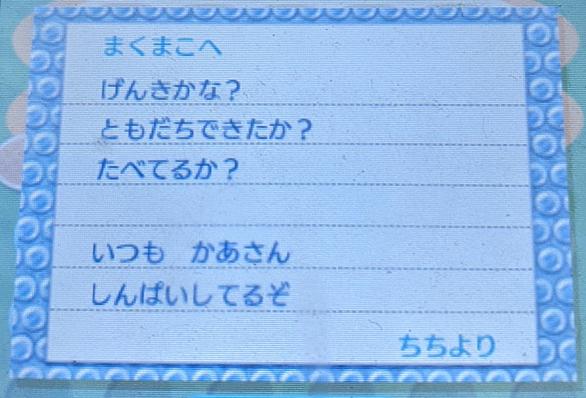 まくまこへ
げんきかな？
ともだちできたか？
たべてるか？
いつも　かあさん
しんぱいしてるぞ
ちちより